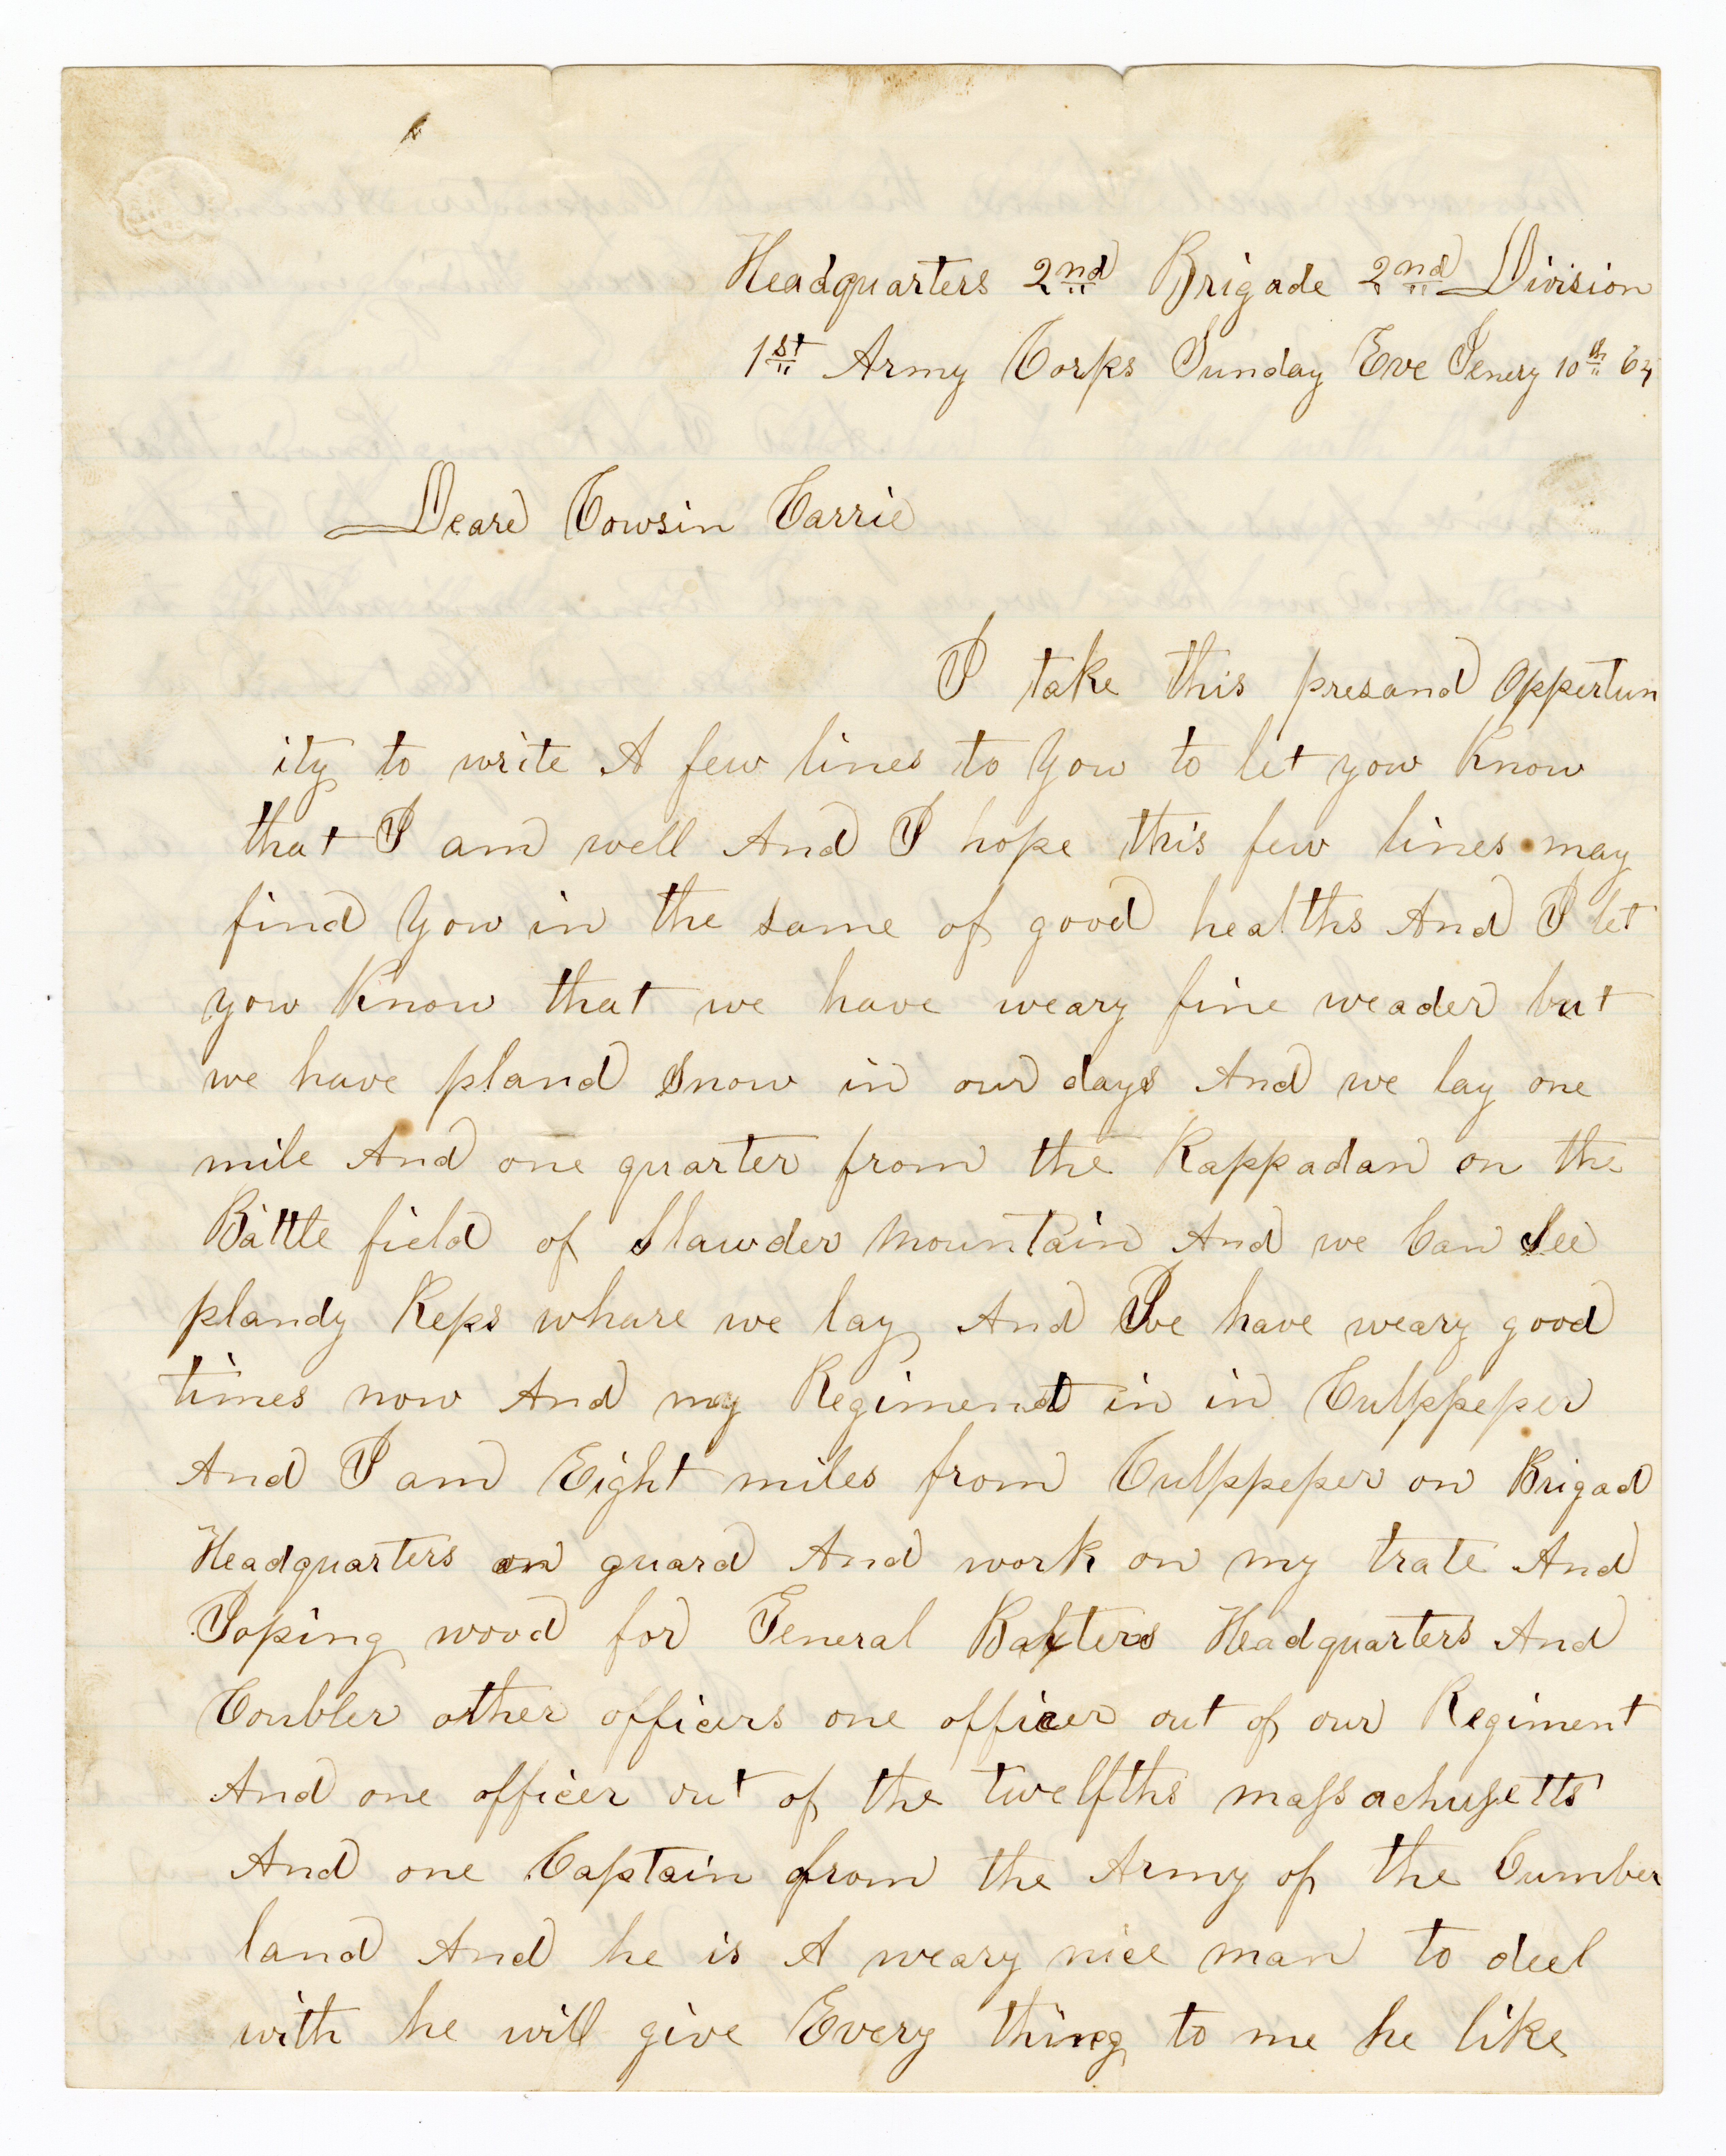 Headquarters 2nd Brigade 2nd Division
1st Army Corps Sunday Eve Jenery 10th 64
Deare Cowsin Carrie
I take this presand Oppertun
ity to write A few lines to Yow to let yow Know
that I am well And I hope this few lines may
find Yow in the same of good healths And I let
yow Know that we have weary fine weader but
we have pland Snow in our days And we lay one
mile And one quarter from the Rappadan on the
Battle field of Slawder Mountain And we Can See
plandy Reps whare we lay And We have weary good
times now And my Regimendt in in Culppeper
And I am Eight miles from Culppeper on Brigad
Headquarters on guard And work on my trate And
Joping wood for General Baxters Headquarters And
Coubler other officers one officer out of our Regiment
And one officer out of the twelfths massachusetts
And one Captain from the Army of the Cumber
land And he is A weary nice man to deel
with he will give Every thing to me he like